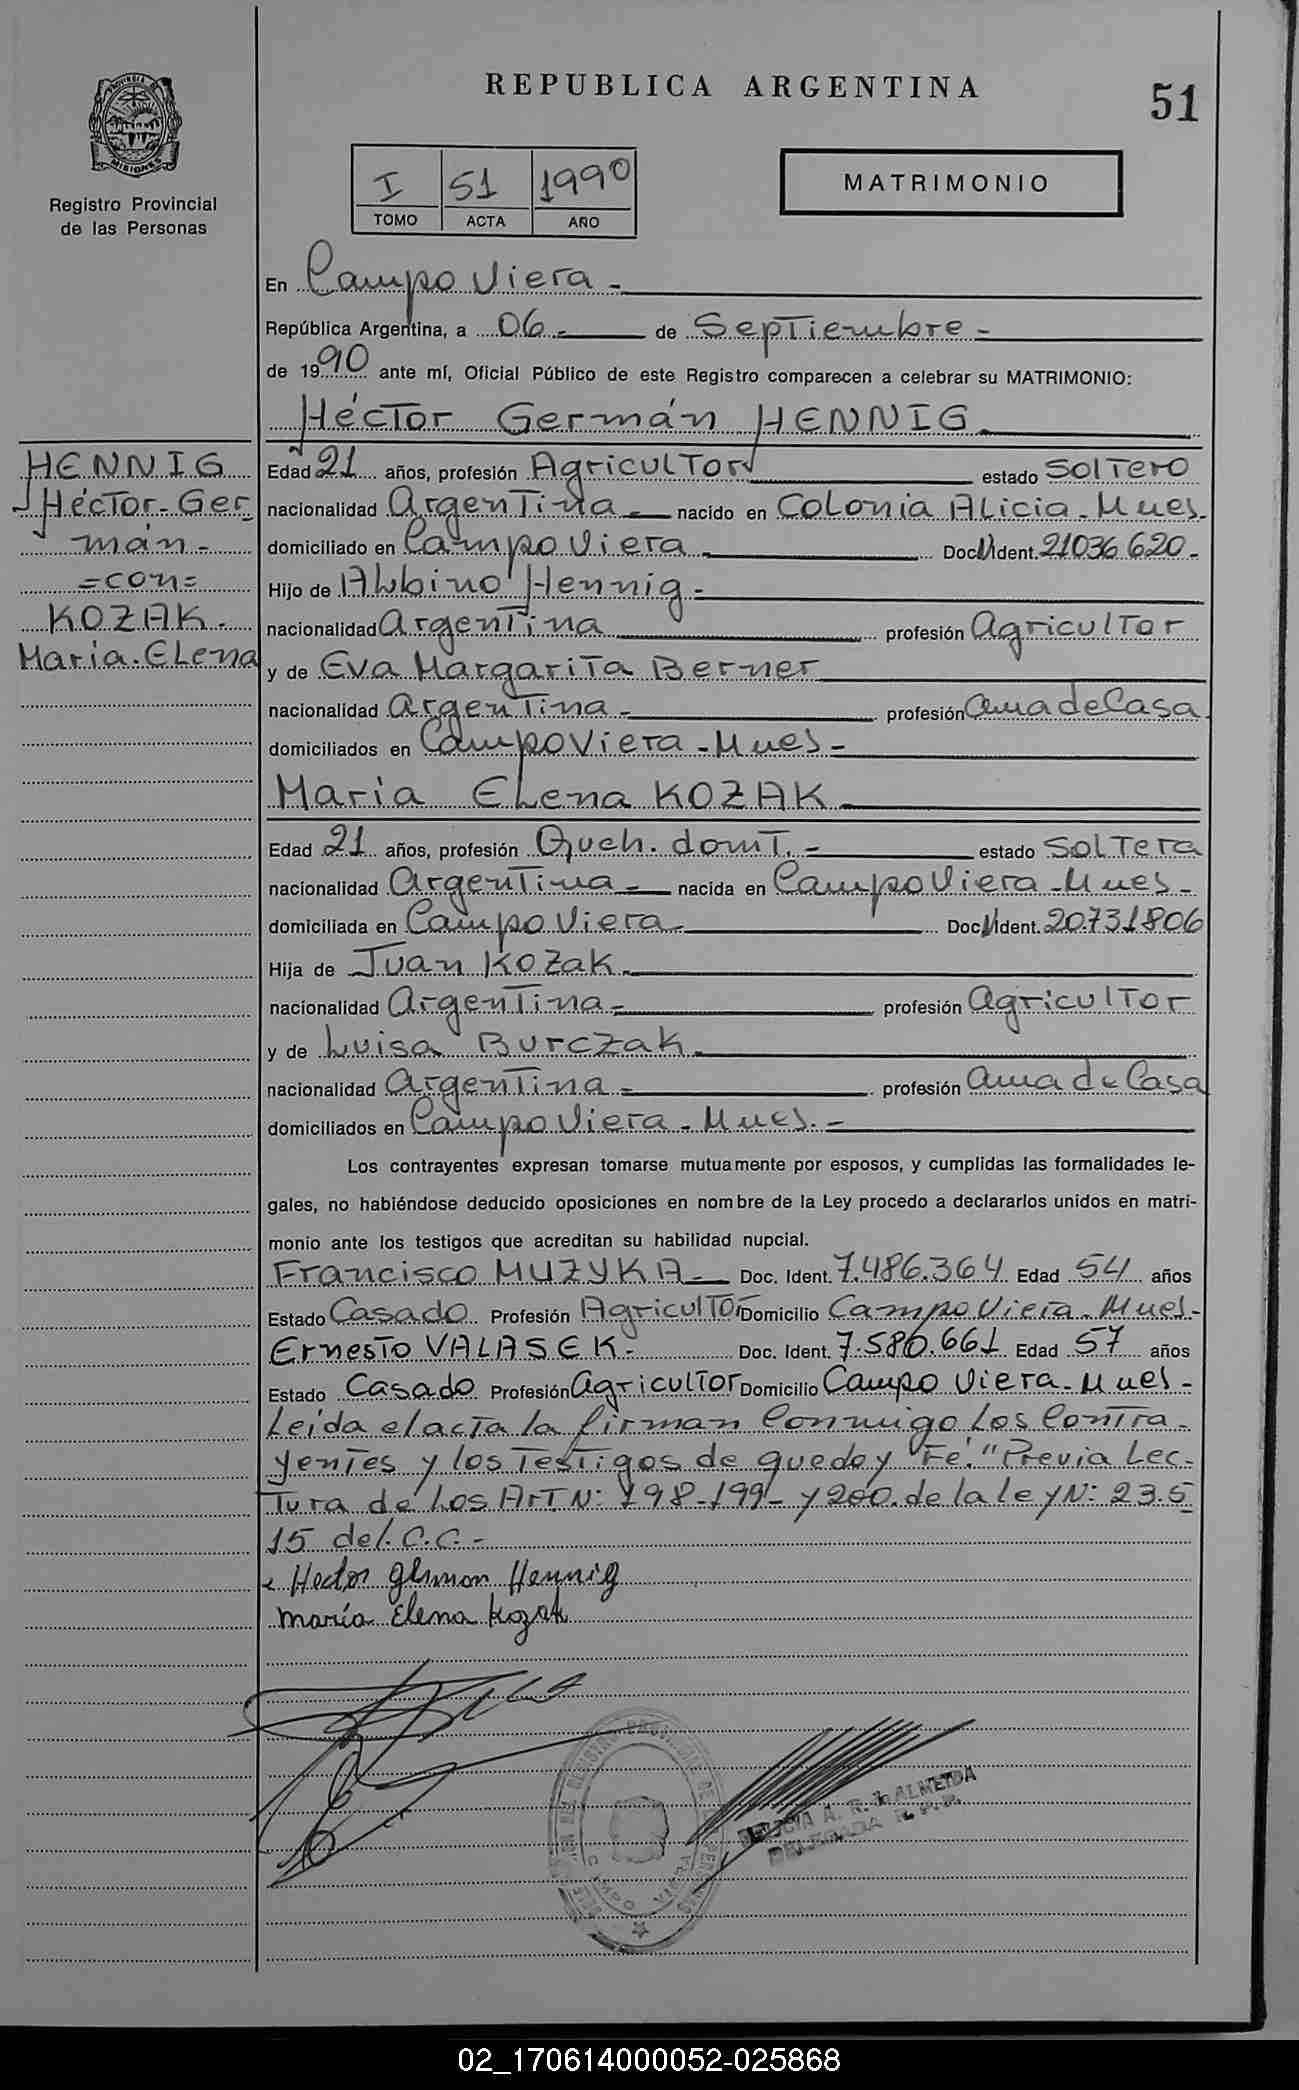 REPUBLICA ARGENTINA
51
MISIONES
Registro Provincial
de las Personas
I 51 1990
TOMO ACTA AÑO
MATRIMONIO
En Campo Viera -
República Argentina, a 06 - de Septiembre -
de 1990 ante mí, Oficial Público de este Registro comparecen a celebrar su MATRIMONIO:
Héctor Germán HENNIG
HENNIG
Héctor-Ger
mán-
=con=
KOZAK-
Maria-Elena
Edad 21 años, profesión Agricultor estado Soltero
nacionalidad Argentina - nacido en Colonia Alicia-Mnes-
domiciliado en Campo Viera - Doc. N Ident. 21036620-
Hijo de Albino Hennig -
nacionalidad Argentina profesión Agricultor
y de Eva Margarita Berner
nacionalidad Argentina - profesión ama de Casa
domiciliados en Campo Viera - Mnes -
Maria Elena KOZAK -
Edad 21 años, profesión Queh. domt. - estado Soltera
nacionalidad Argentina - nacida en Campo Viera - Mnes -
domiciliada en Campo Viera - Doc. N Ident. 20.731806
Hija de Juan Kozak -
nacionalidad Argentina - profesión agricultor
y de Luisa Burczak -
nacionalidad Argentina - profesión ama de Casa
domiciliados en Campo Viera - Mnes. -
Los contrayentes expresan tomarse mutuamente por esposos, y cumplidas las formalidades le-
gales, no habiéndose deducido oposiciones en nombre de la Ley procedo a declararlos unidos en matri-
monio ante los testigos que acreditan su habilidad nupcial.
Francisco MUZYKA - Doc. Ident. 7.486.364 Edad 54 años
Estado Casado Profesión Agricultor Domicilio Campo Viera - Mnes -
Ernesto VALASEK - Doc. Ident. 7.580.661 Edad 57 años
Estado Casado Profesión agricultor Domicilio Campo Viera - Mnes -
Leida el acta la firman Conmigo Los Contra-
yentes y los Testigos de que doy "Fé." Previa Lec-
tura de Los Art N: 198-199- y 200. de la ley N: 23.5
15 del. C.C. -
Hector German Hennig
maría Elena Kozak
CAMPO VIERA
A. R. ALMEIDA
DELEGADA R.P.P.
02_170614000052-025868